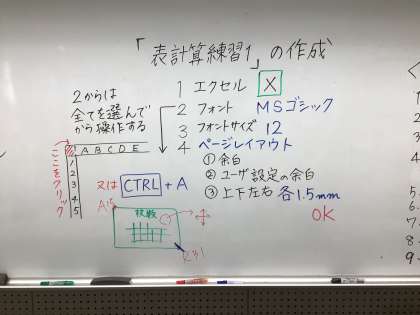 「表計算練習1」の作成
1 エクセル X
2 フォント MSゴシック
3 フォントサイズ 12
4 ページレイアウト
①余白
②ユーザ設定の余白
③上下左右 各1.5mm
OK
2からは
全てを選んで
から操作する
ここをクリック
A B C D E
1
2
3
4
5
又は CTRL + A
5.
6.
7.
8.
9.